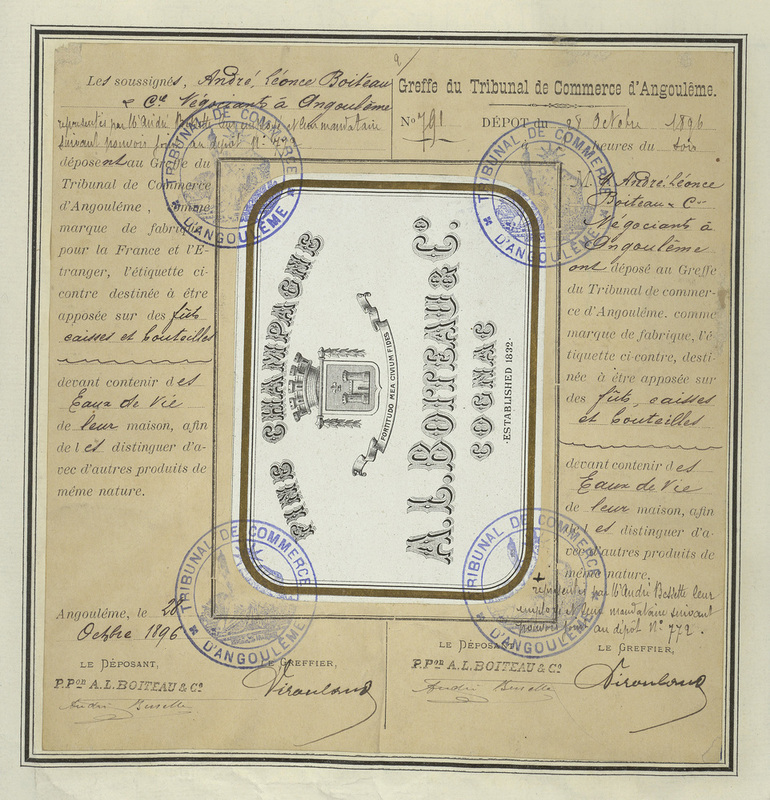 Les soussignés, André, Léonce Boiteau
& Cie Négociants à Angoulême
représentés par M. André leur et leur mandataire
suivant pouvoir au dépôt N°
déposent au Greffe du
Tribunal de Commerce
d'Angoulême, comme
marque de fabrique
pour la France et l'É-
tranger, l'étiquette ci-
contre destinée à être
apposée sur des fûts
caisses et bouteilles
devant contenir des
Eaux de Vie
de leur maison, afin
de les distinguer d'a-
vec d'autres produits de
même nature.
Angoulême, le 28
Octobre 1896
LE DÉPOSANT, LE GREFFIER,
P.PON A.L.BOITEAU & Co
Greffe du Tribunal de Commerce d'Angoulême.
No 791 DÉPOT du 28 Octobre 1896
4 heures du soir
M. André Léonce
Boiteau & Cie
Négociants à
Angoulême
ont déposé au Greffe
du Tribunal de commer-
ce d'Angoulême, comme
marque de fabrique, l'é-
tiquette ci-contre, desti-
née à être apposée sur
des fûts, caisses
et bouteilles
devant contenir des
Eaux de Vie
de leur maison, afin
de les distinguer d'a-
vec d'autres produits de
même nature.
+ représentés par M. André leur
employé et leur mandataire suivant
pouvoir au dépôt No 772.
LE DÉPOSANT, LE GREFFIER,
P.PON A.L.BOITEAU & Co
FINE CHAMPAGNE
FORTITUDO MEA CIVIUM FIDES
A.L.BOITEAU & Co.
COGNAC
·ESTABLISHED 1832·
TRIBUNAL DE COMMERCE
D'ANGOULÊME
TRIBUNAL DE COMMERCE
D'ANGOULÊME
TRIBUNAL DE COMMERCE
D'ANGOULÊME
TRIBUNAL DE COMMERCE
D'ANGOULÊME